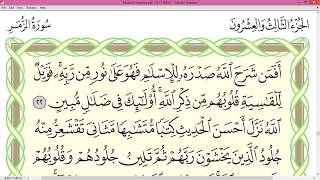 الجزء الثالث والعشرون
سورة الزمر
أَفَمَن شَرَحَ ٱللَّهُ صَدْرَهُۥ لِلْإِسْلَٰمِ فَهُوَ عَلَىٰ نُورٍ مِّن رَّبِّهِۦ ۚ فَوَيْلٌ
لِّلْقَٰسِيَةِ قُلُوبُهُم مِّن ذِكْرِ ٱللَّهِ ۚ أُو۟لَٰٓئِكَ فِى ضَلَٰلٍ مُّبِينٍ ٢٢
ٱللَّهُ نَزَّلَ أَحْسَنَ ٱلْحَدِيثِ كِتَٰبًا مُّتَشَٰبِهًا مَّثَانِىَ تَقْشَعِرُّ مِنْهُ
جُلُودُ ٱلَّذِينَ يَخْشَوْنَ رَبَّهُمْ ثُمَّ تَلِينُ جُلُودُهُمْ وَقُلُوبُهُمْ